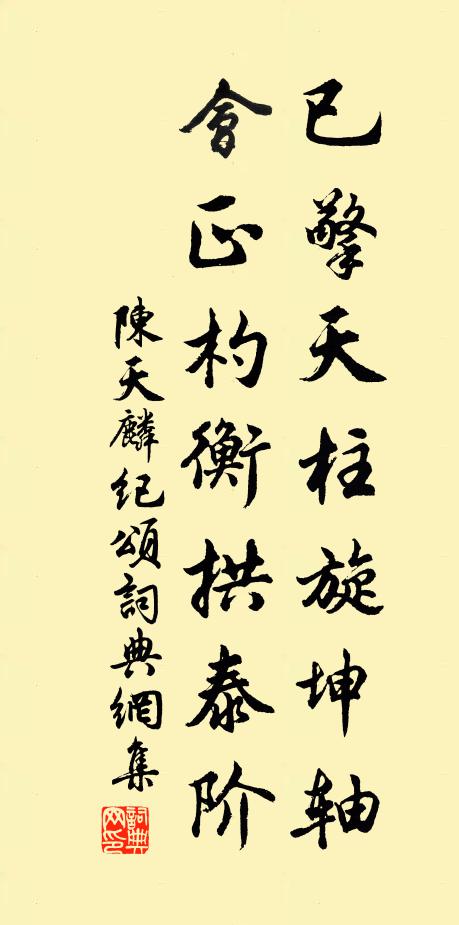 已擎天柱旋坤轴
會正杓衡拱泰阶
陳天麟纪頌詞典網集
詞典网印